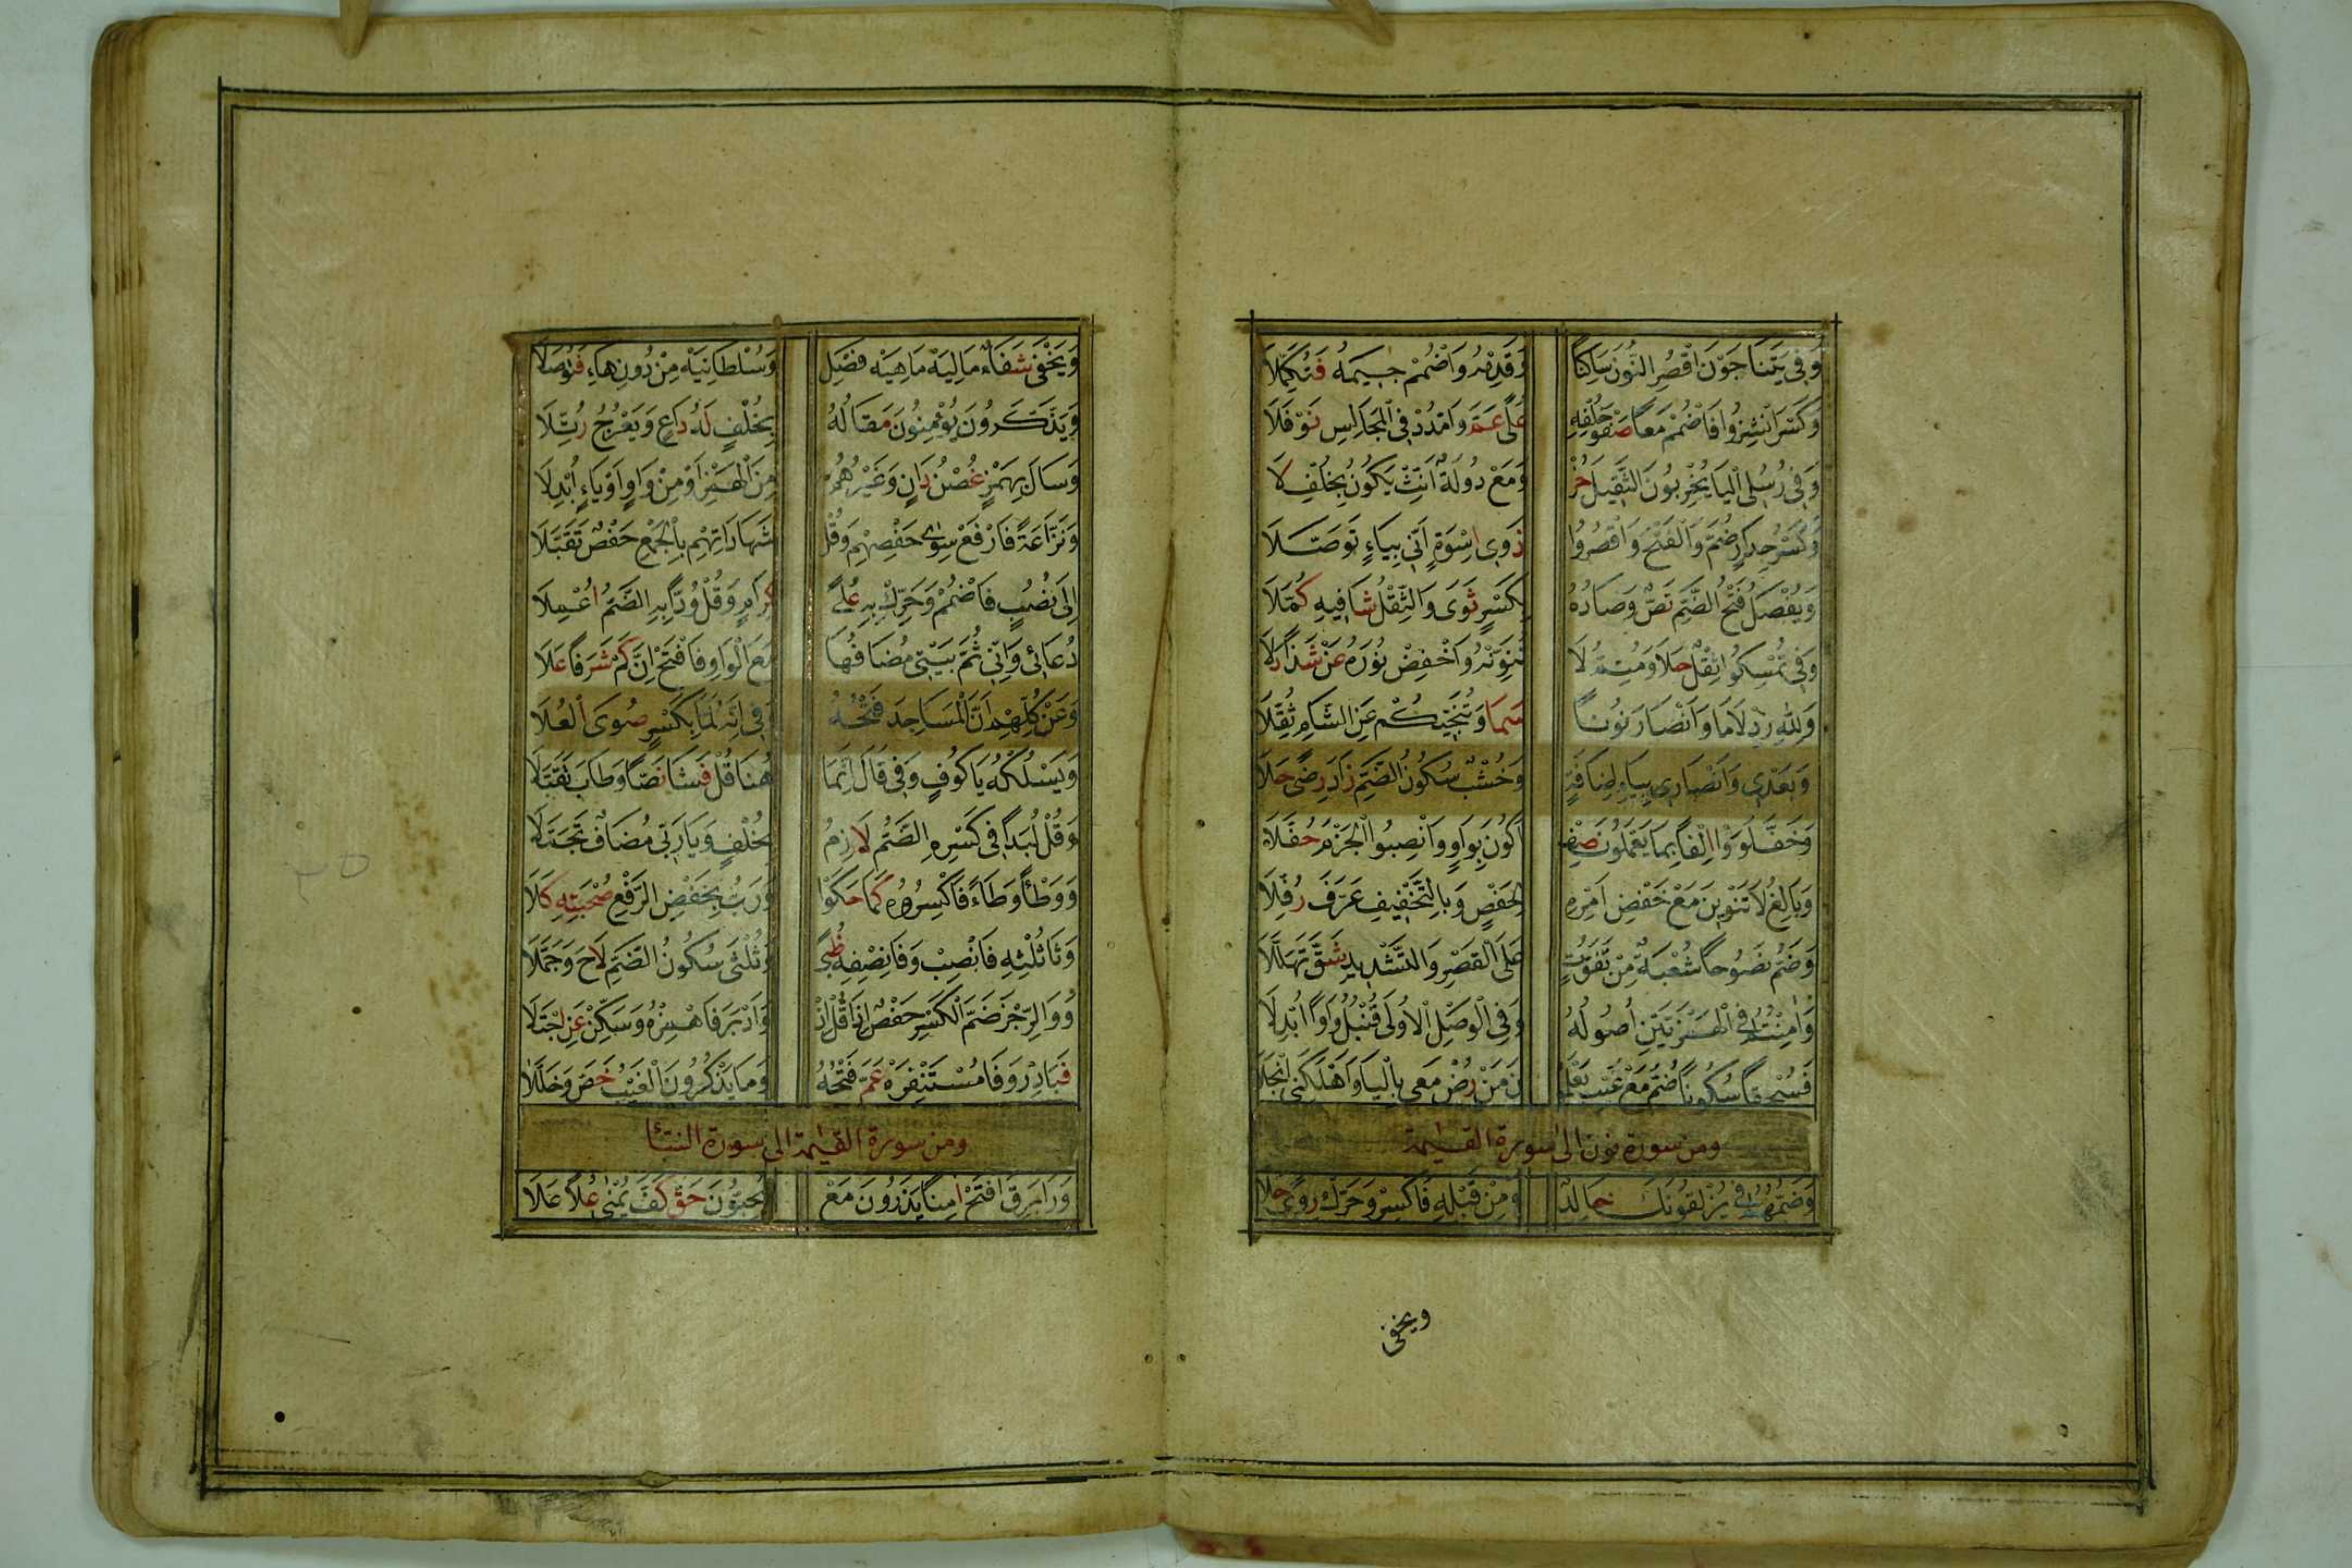 وَفِي يَتَنَاجَوْنَ اقْصُرِ النُّونَ سَاكِنًا وَقَدِّمْهُ وَاضْمُمْ جِيمَهُ فَتُكَمِّلَا
وَكَسْرَ انْشِزُوا فَاضْمُمْ مَعًا صَفْوَ خُلْفِهِ عُلًى عَمَّ وَامْدُدْ فِي الْمَجَالِسِ نَوْفَلَا
وَفِي رُسُلِي الْيَا يُخْرِبُونَ الثَّقِيلَ حُزْ وَمَعْ دُولَةً أَنِّثْ يَكُونَ بِخُلْفِ لَا
وَكَسْرَ جِدَارٍ ضُمَّ وَالْفَتْحَ وَاقْصُرُوا ذَوِي اسْوَةٍ اَنِّي بِيَاءٍ تَوَصَّلَا
وَيُفْصَلُ فَتْحُ الضَّمِّ نَصٌّ وَصَادُهُ بِكَسْرٍ ثَوَى وَالثِّقْلُ شَافِيهِ كُمِّلَا
وَفِي تُمْسِكُوا ثِقْلٌ حَلَا وَمُتِمُّ لَا تُنَوِّنْهُ وَاخْفِضْ نُورَهُ عَنْ شَذًا دَلَا
وَلِلَّهِ زِدْ لَامًا وَاَنْصَارَ نُونًا سَمَا وَتُنَجِّيكُمْ عَنِ الشَّامِ ثُقِّلَا
وَبَعْدِي وَاَنْصَارِي بِيَاءِ اِضَافَةٍ وَخُشْبٌ سُكُونُ الضَّمِّ زَادَ رِضًى حَلَا
وَخَفَّ لَوَوْا اِلْفًا بِمَا يَعْمَلُونَ صِفْ اَكُونَ بِوَاوٍ وَانْصِبُوا الْجَزْمَ حُفَّلَا
وَبَالِغُ لَا تَنْوِينَ مَعْ خَفْضِ اَمْرِهِ لِحَفْصٍ وَبِالتَّخْفِيفِ عَرَّفَ رُفِّلَا
وَضَمَّ نَصُوحًا شُعْبَةٌ مِنْ تَفَوُّتٍ عَلَى الْقَصْرِ وَالتَّشْدِيدِ شَقَّ تَهَلَّلَا
وَاٰمِنْتُمُ فِي الْهَمْزَتَيْنِ اُصُولُهُ وَفِي الْوَصْلِ الْاُولَى قُنْبُلٌ وَاوًا اُبْدِلَا
فَسُحْقًا سُكُونًا ضُمَّ مَعْ غَيْبِ يَعْلَمُو نَ مَنْ رُضْ مَعِي بِالْيَا وَاَهْلَكَنِي انْجَلَا
ومن سورة نون الى سورة القيٰمة
وَضَمُّهُمُ فِي يُزْلِقُونَكَ خَالِدٌ وَمِنْ قَبْلِهِ فَاكْسِرْ وَحَرِّكْ رِوًى حَلَا
ويخفى
وَيَخْفَى شِفَاءً مَالِيَهْ مَاهِيَهْ فَصِلْ وَسُلْطَانِيَهْ مِنْ دُونِ هَاءٍ فَتُوصَلَا
وَيَذَّكَّرُونَ يُؤْمِنُونَ مَقَالُهُ بِخُلْفٍ لَهُ دَاعٍ وَيَعْرُجُ رُتِّلَا
وَسَالَ بِهَمْزٍ غُصْنُ دَانٍ وَغَيْرُهُمْ مِنَ الْهَمْزِ اَوْ مِنْ وَاوٍ اَوْ يَاءٍ اُبْدِلَا
وَنَزَّاعَةً فَارْفَعْ سِوٰى حَفْصِهِمْ وَقُلْ شَهَادَاتِهِمْ بِالْجَمْعِ حَفْصٌ تَقَبَّلَا
اِلَى نُصُبٍ فَاضْمُمْ وَحَرِّكْ بِهِ عُلًى كِرَامٍ وَقُلْ وُدًّا بِهِ الضَّمُّ اُعْمِلَا
دُعَائِي وَاِنِّي ثُمَّ بَيْتِي مُضَافُهَا مَعَ الْوَاوِ فَافْتَحْ اِنَّ كَمْ شَرَفًا عَلَا
وَعَنْ كُلِّهِمْ اَنَّ الْمَسَاجِدَ فَتْحُهُ وَفِي اِنَّهُ لَمَّا بِكَسْرٍ صُوَى الْعُلَا
وَيَسْلُكْهُ يَا كُوفٍ وَفِي قَالَ اِنَّمَا هُنَا قُلْ فَشَا نَصًّا وَطَابَ تَقَبُّلَا
وَقُلْ لُبَدًا فِي كَسْرِهِ الضَّمُّ لَازِمٌ بِخُلْفٍ وَيَا رَبِّي مُضَافٌ تَجَمَّلَا
وَوَطْأً وَطَاءً فَاكْسِرُوهُ كَمَا حَكَوْا وَرَبُّ بِخَفْضِ الرَّفْعِ صُحْبَتُهُ كَلَا
وَثَا ثُلْثِهِ فَانْصِبْ وَفَا نِصْفِهِ ظُبًى وَثُلْثَى سُكُونُ الضَّمِّ لَاحَ وَجَمَّلَا
وَوَالرِّجْزَ ضَمَّ الْكَسْرَ حَفْصٌ اِذَا قُلْ اِذْ وَاَدْبَرَ فَاهْمِزْهُ وَسَكِّنْ عَنِ اجْتِلَا
فَبَادِرْ وَفَا مُسْتَنْفِرَهْ عَمَّ فَتْحُهُ وَمَا يَذْكُرُونَ الْغَيْبَ خُصَّ وَخُلَّلَا
ومن سورة القيٰمة الى سورة النبأ
وَرَا بَرِقَ افْتَحْ اٰمِنًا يَذَرُونَ مَعْ يُحِبُّونَ حَقٌّ كَفَّ يُمْنٰى عُلًا عَلَا